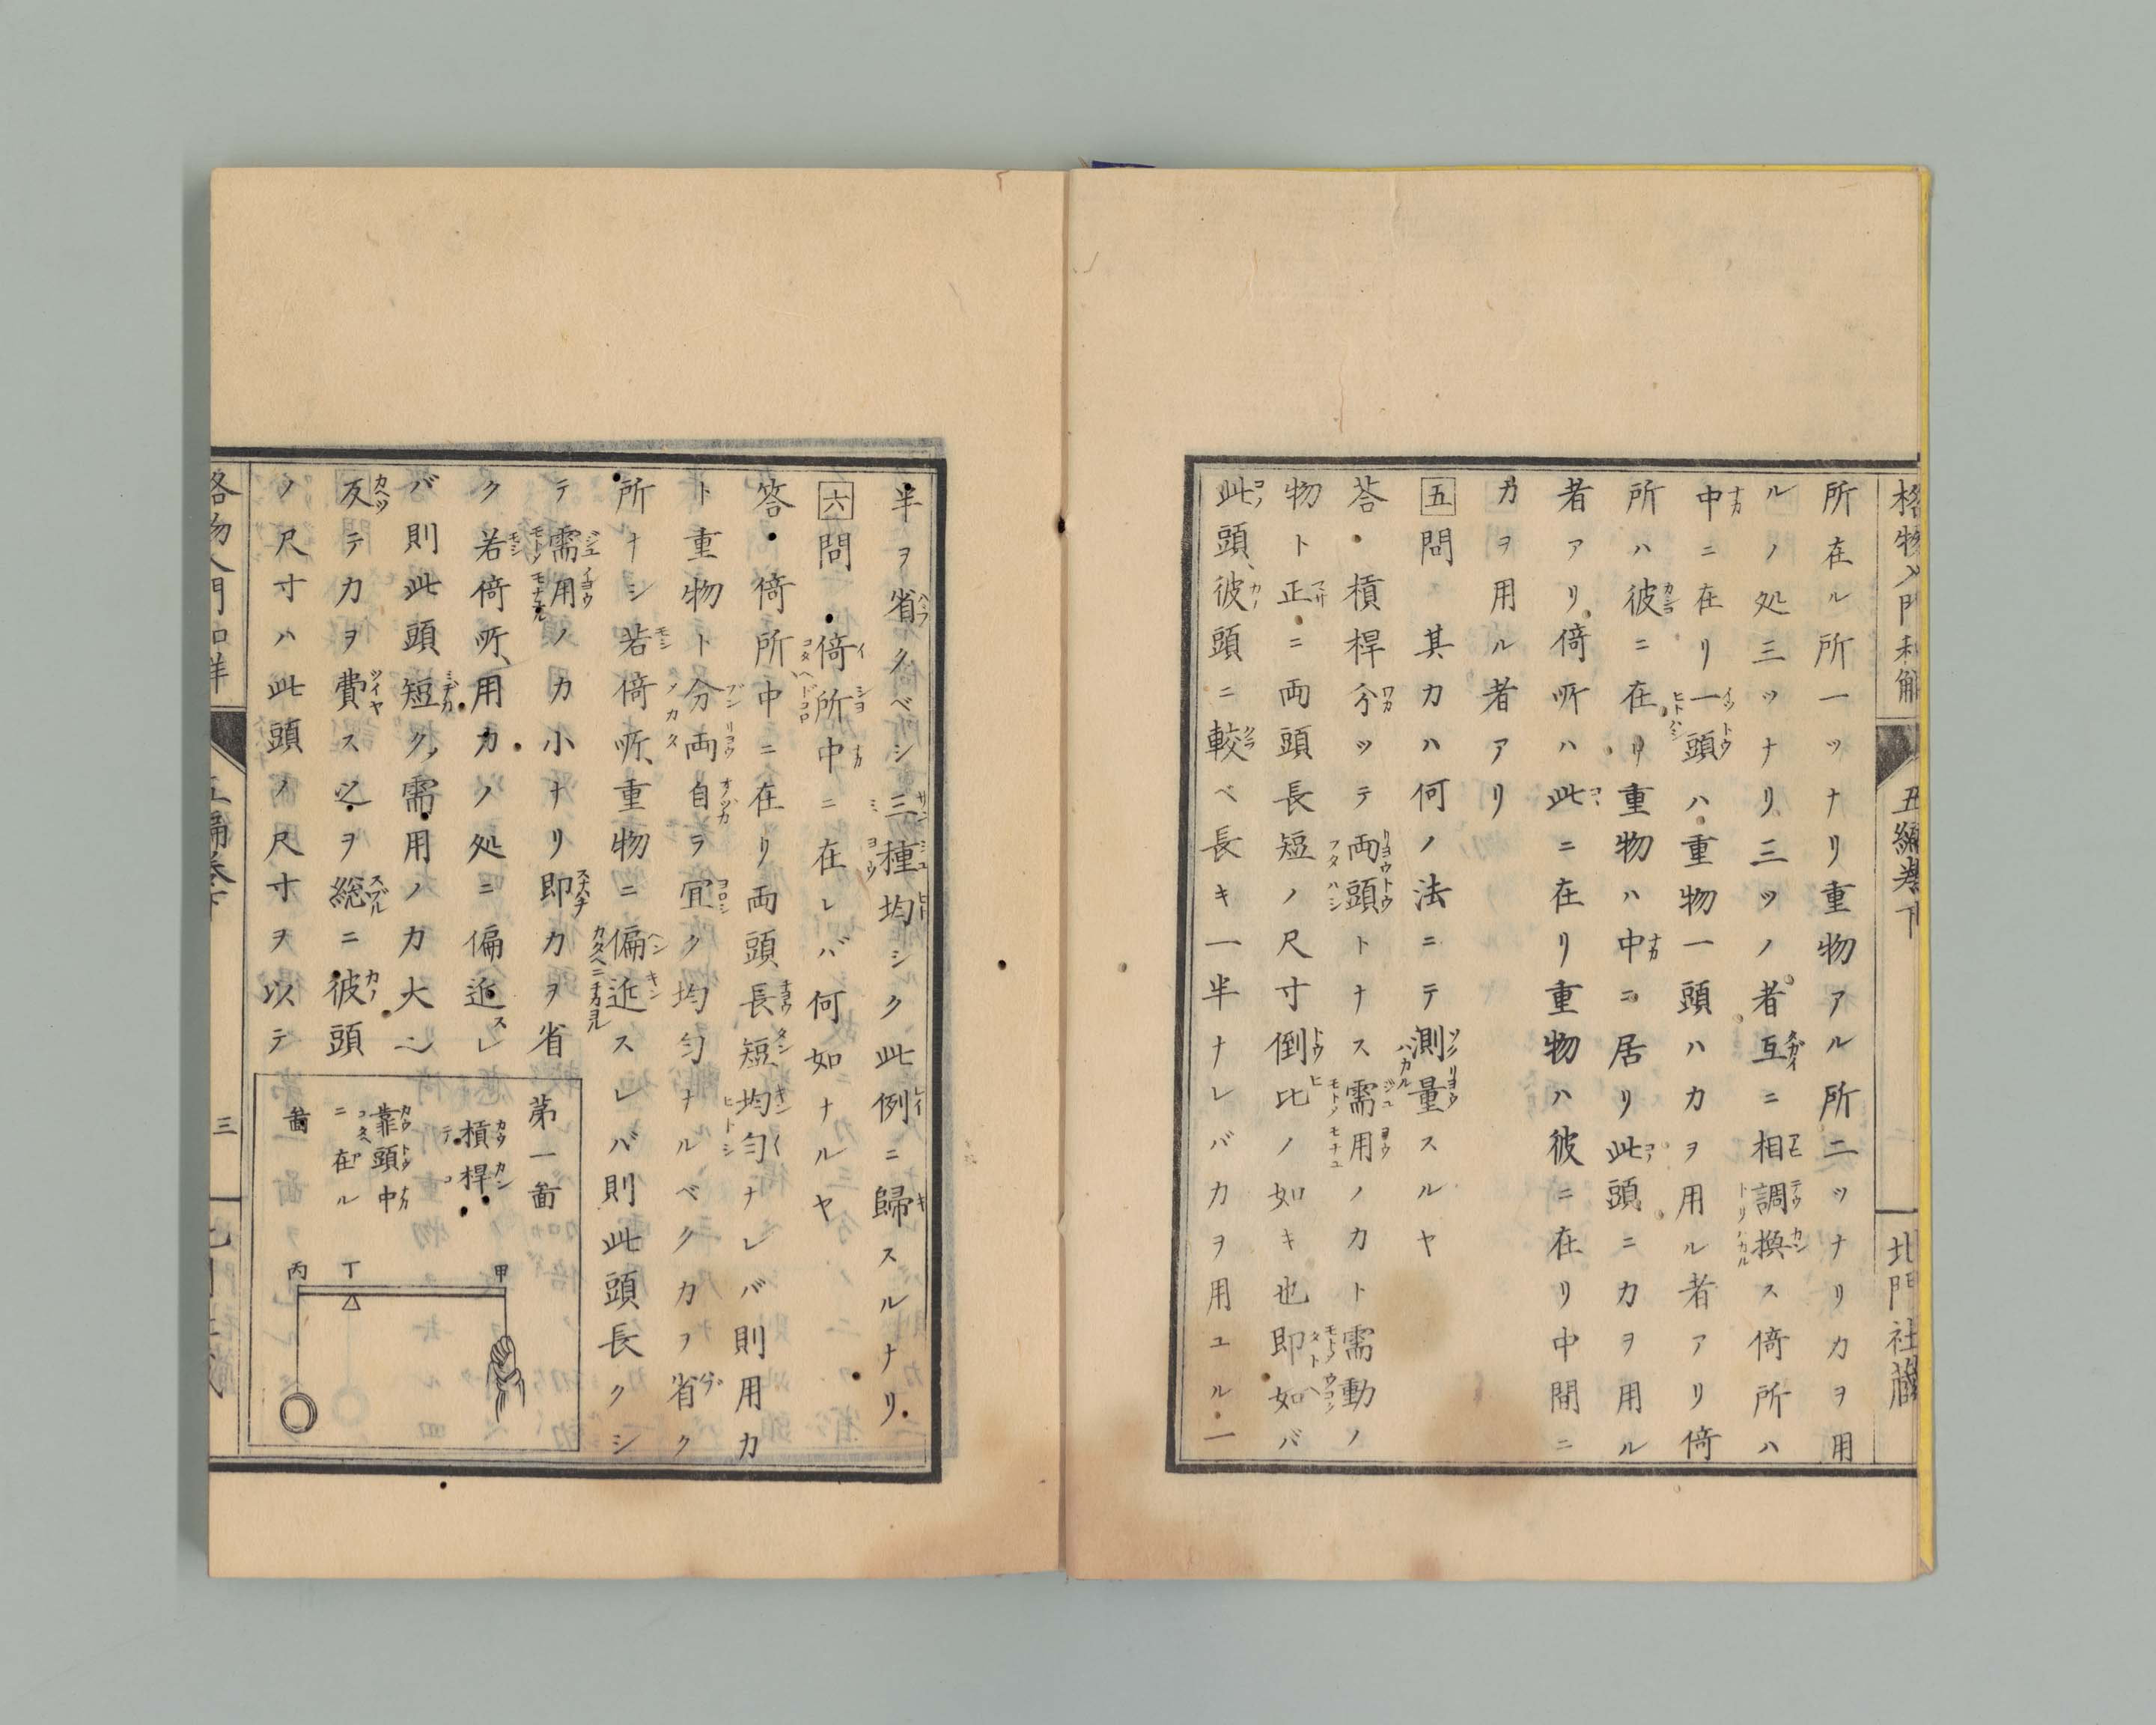 格物入門和解
五編巻下
北門社蔵
所在ル所一ツナリ重物アル所二ツナリカヲ用
ルノ処三ツナリ三ツノ者互ニ相調換ス倚所ハ
中ニ在リ一頭ハ重物一頭ハカヲ用ル者アリ倚
所ハ彼ニ在リ重物ハ中ニ居リ此頭ニカヲ用ル
者アリ倚所ハ此ニ在リ重物ハ彼ニ在リ中間ニ
カヲ用ル者アリ
五問 其カハ何ノ法ニテ測量スルヤ
答 槓桿分ツテ両頭トナス需用ノカト需動ノ
物ト正ニ両頭長短ノ尺寸倒比ノ如キ也即如バ
此頭彼頭ニ較ベ長キ一半ナレバカヲ用ユル一
半ヲ省クベシ三種均シク此例ニ歸スルナリ
六問 倚所中ニ在レバ何如ナルヤ
答 倚所中ニ在リ両頭長短均匀ナレバ則用カ
ト重物ト分両自ヲ宜ク均匀ナルベクカヲ省ク
所ナシ若倚所重物ニ偏近スレバ則此頭長クシ
テ需用ノカ小ナリ即カヲ省
ク若倚所用カノ処ニ偏近スレ
バ則此頭短ク需用ノカ大ニ
反テカヲ費ス之ヲ総ニ彼頭
ノ尺寸ハ此頭ノ尺寸ヲ以テ
第一啚
槓桿
靠頭中
ニ在ル
啚
甲
丁
丙
格物入門和解
五編巻下
三
北門社蔵